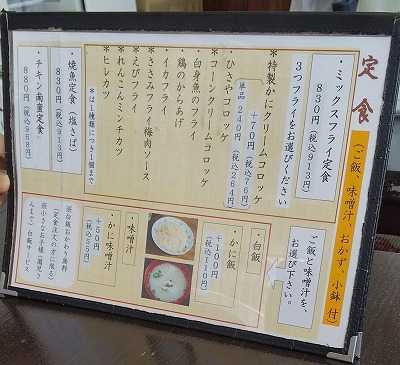 定食
(ご飯、味噌汁、おかず、小鉢 付)
・ミックスフライ定食
830円(税込913円)
3つフライをお選びください
*特製かにクリームコロッケ
+70円(税込76円)
単品 240円(税込264円)
*ひさやコロッケ
*コーンクリームコロッケ
*白身魚のフライ
*鶏のからあげ
*イカフライ
*ささみフライ梅肉ソース
*えびフライ
*れんこんミンチカツ
*ヒレカツ
*は1種類につき1個まで
・焼魚定食(塩さば)
830円(税込913円)
・チキン南蛮定食
880円(税込968円)
ご飯と味噌汁を、
お選び下さい。
・白飯
・かに飯
+100円
(税込110円)
・味噌汁
・かに味噌汁
+50円
(税込55円)
※白飯おかわり無料
(定食注文の方に限る)